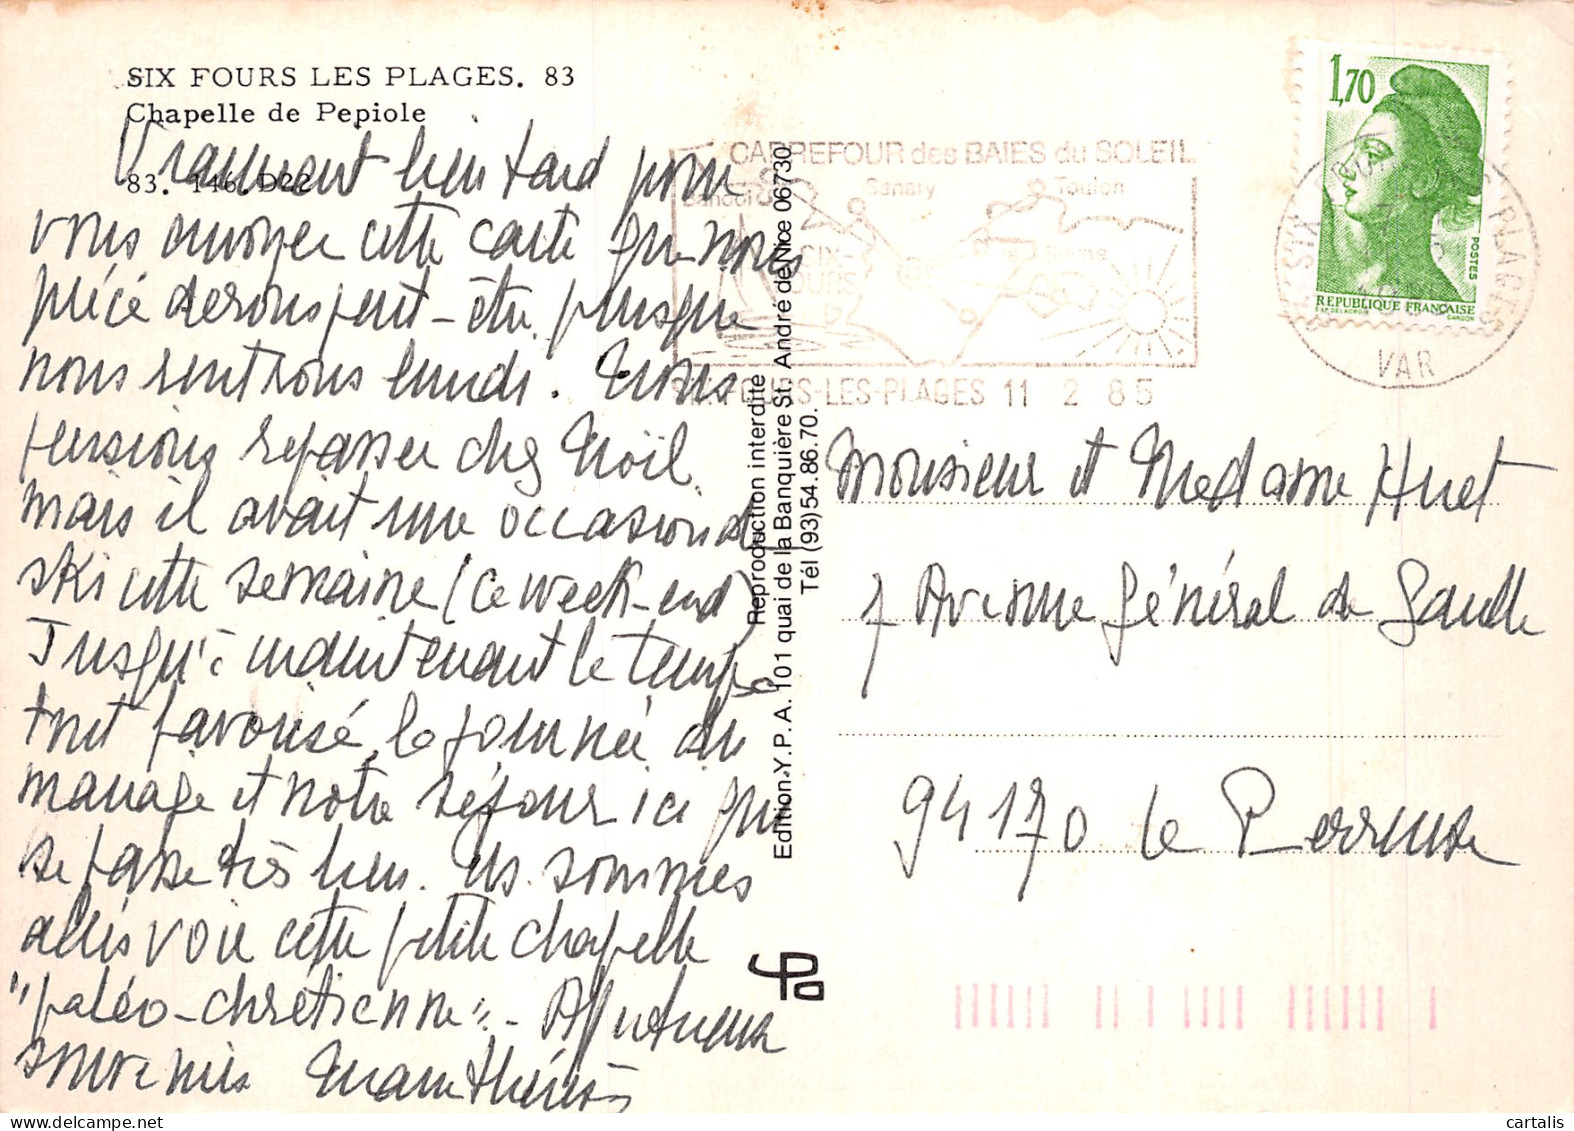 SIX FOURS LES PLAGES. 83
Chapelle de Pepiole
83. 146. D22
Vraiment bien tard pour
vous envoyer cette carte que nous
précéderons peut-être puisque
nous rentrons lundi. Nous
pensions repasser chez Noël
mais il avait une occasion de
ski cette semaine (ce week-end)
Jusqu'à maintenant le temps a
tout favorisé, la journée du
mariage et notre séjour ici qui
se passe très bien. Ns. sommes
allés voir cette petite chapelle
"paléo-chrétienne". - Affectueux
souvenirs
Reproduction interdite
Edition-Y.P.A. 101 quai de la Banquière St. André de Nice 06730
Tél (93) 54.86.70.
CARREFOUR des BAIES du SOLEIL
Bandol
Sanary
Toulon
SIX-
FOURS
Seyne
SIX-FOURS-LES-PLAGES 11 2 85
1,70
POSTES
REPUBLIQUE FRANÇAISE
D'AP. DELACROIX
GANDON
SIX FOURS LES PLAGES
VAR
Monsieur et Madame Huet
7 Avenue Général de Gaulle
94170 Le Perreux
cartalis